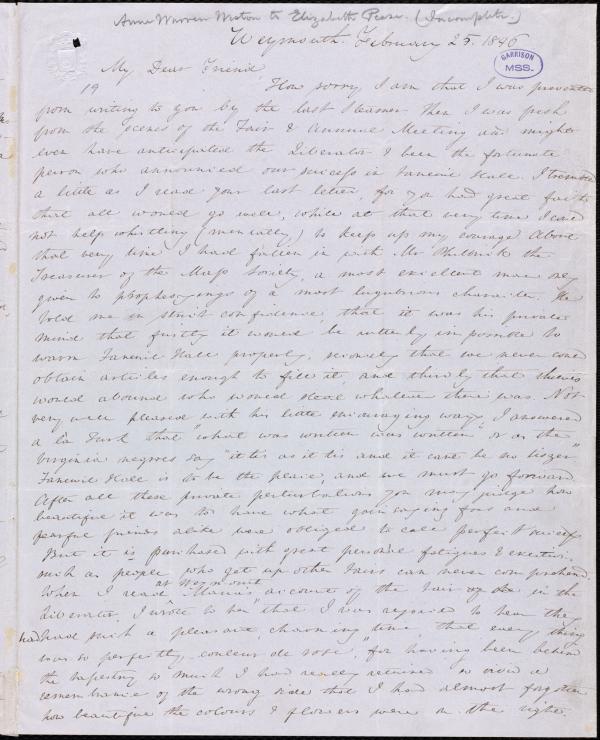 Anne Warren Weston to Elizabeth Pease. (Incomplete.)
Weymouth. February 25. 1846
GARRISON
MSS.
My Dear Friend,
19 How sorry I am that I was prevented
from writing to you by the last Steamer. Then I was fresh
from the scenes of the Fair & Annual Meeting and might
even have anticipated the Liberator & been the fortunate
person who announced our success in Faneuil Hall. I trembled
a little as I read your last letter, for you had great faith
that all would go well, while at that very time I could
not help whistling (mentally) to keep up my courage. About
that very time I had fallen in with Mr Philbrick the
Treasurer of the Mass Society, a most excellent man only
given to prophesyings of a most lugubrious character. He
told me in strict confidence that it was his private
mind that firstly it would be utterly impossible to
warm Faneuil Hall properly, secondly that we never could
obtain articles enough to fill it, and thirdly that thieves
would abound who would steal whatever there was. Not
very well pleased with his little encouraging ways I answered
a la Turk that "what was written was written" or as the
Virginia negroes say "it tis as it tis and it cant be no tiszer"
Faneuil Hall is to be the place, and we must go forward
After all these private perturbations you may judge how
beautiful it was to have what gainsaying foes and
fearful friends alike were obliged to call perfect success
But it is purchased with great personal fatigues & exertion,
such as people who get up other Fairs can never comprehend.
When I read at Weymouth Maria's account of the Fair in the
Liberator, I wrote to her "that I was rejoiced to hear they
had had such a pleasant, charming time that every thing
was so perfectly couleur de rose," for having been behind
the tapestry so much I had really retained so vivid a
remembrance of the wrong side that I had almost forgotten
how beautiful the colours & flowers were on the right.